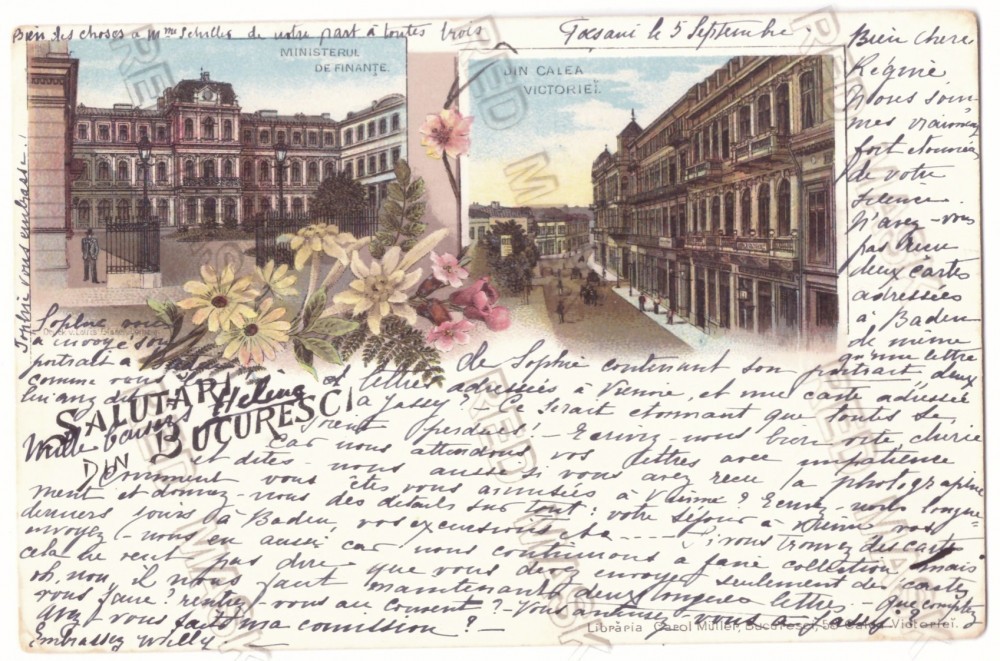 Bien des choses à Mme Schiller de notre part à toutes trois
Focsani le 5 Septembre.
MINISTERUL
DE FINANȚE.
DIN CALEA
VICTORIEĬ.
Bien chère
Régine
Nous som-
mes vraiment
fort étonnées
de votre
silence.
N'avez-vous
pas reçu
deux cartes
adressées
à Baden
de même
qu'une lettre
de Sophie contenant son portrait, deux
lettres adressées à Vienne, et une carte adressée
à Jassy? - Ce serait étonnant que toutes se
soient perdues! - Ecrivez-nous bien vite, chérie
car nous attendons vos lettres avec impatience
et dites-nous aussi si vous avez reçu la photographie
Comment vous êtes vous amusées à Vienne? Ecrivez-nous longue-
ment et donnez-nous des détails sur tout: votre séjour à Vienne vos
derniers jours à Baden, vos excursions etc. Si vous trouvez des cartes
envoyez-nous en aussi car nous continuons à faire collection, mais
cela ne veut pas dire que vous devez envoyer seulement des cartes
oh, non, il nous faut maintenant deux longues lettres. - Que comptez
vous faire? rentrez-vous au couvent? - Vous amusez vous à Jassy?
Avez-vous faits ma comission? -
Embrassez Willy.
Sophie vous embrasse!
Sophie vous
a envoyé son
portrait à
comme vous
Mille baisers Hélène
SALUTĂRI
DIN BUCURESCI
Librăria Carol Müller, Bucuresci, 53 Calea Victorieĭ.
RED MASK
RED MASK
RED MASK
RED MASK
RED MASK
RED MASK